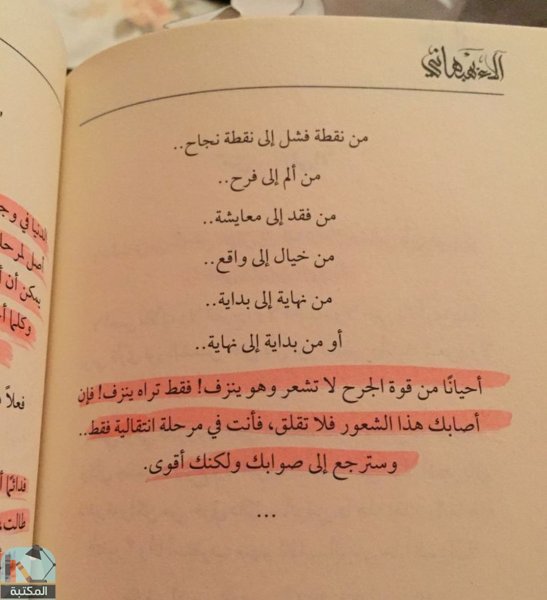 الأصبهاني
من نقطة فشل إلى نقطة نجاح..
من ألم إلى فرح..
من فقد إلى معايشة..
من خيال إلى واقع..
من نهاية إلى بداية..
أو من بداية إلى نهاية..
أحيانًا من قوة الجرح لا تشعر وهو ينزف! فقط تراه ينزف! فإن
أصابك هذا الشعور فلا تقلق، فأنت في مرحلة انتقالية فقط..
وسترجع إلى صوابك ولكنك أقوى.
...
الدنيا في
أصل لمرحلة
يمكن أن
وكلما
فعلاً
فدائمًا
طالت
المكتبة